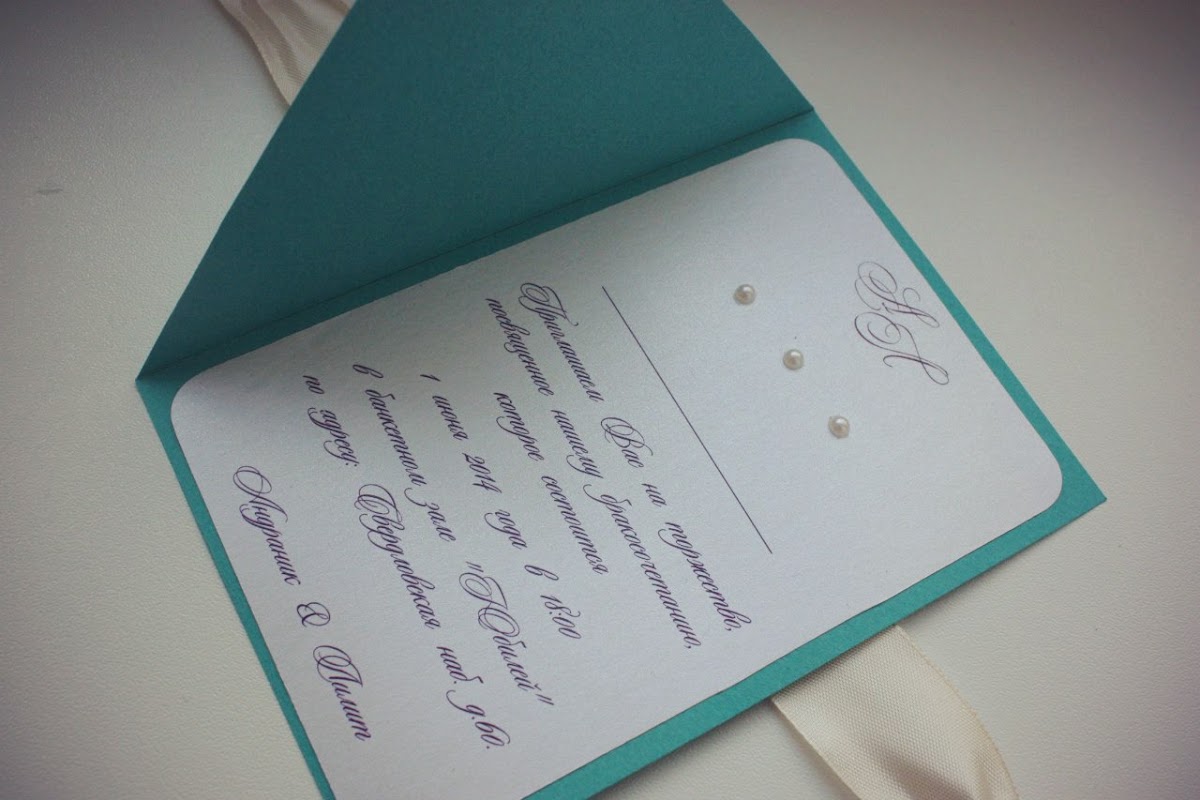 АЛ
Приглашаем Вас на торжество,
посвященное нашему бракосочетанию,
которое состоится
1 июня 2014 года в 18:00
в банкетном зале "Юбилей"
по адресу: Свердловская наб. д.60.
Андраник & Лилит